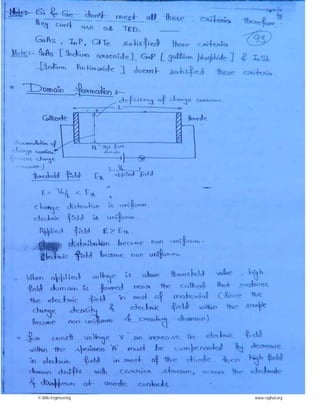 Note:- Si & Ge don't meet all these criteria therefore,
they can't use as TED.
GaAs, InP, CdTe satisfied these criteria
Note:- InAs [Indium arsenide], GaP [gallium phosphide] & InSb
[Indium Antimonide] doesn't satisfied these criteria.
99
Domain formation :-
deficiency of charge carriers
L
Cathode
Anode
Accumulation of
charge carriers
(excess charge
A
high field
domain
V
Threshold field Eth
applied field
E = V/L < Eth
charge distribution is uniform
electric field is uniform
Applied field E > Eth
distribution become non uniform.
Electric field become non uniform.
When applied voltage is above threshold value, high
field domain is formed near the cathode that reduces
the electric field in rest of material (since the
charge density & electric field within the sample
become non-uniform & creating domain)
for const voltage V an increase in electric field
within the specimen 'A' must be compensated by decrease
in electric field in rest of the diode. then high field
domain drifts with carrier stream, across the electrode
& disappear at anode contacts.
© iBilib Engineering
www.raghul.org